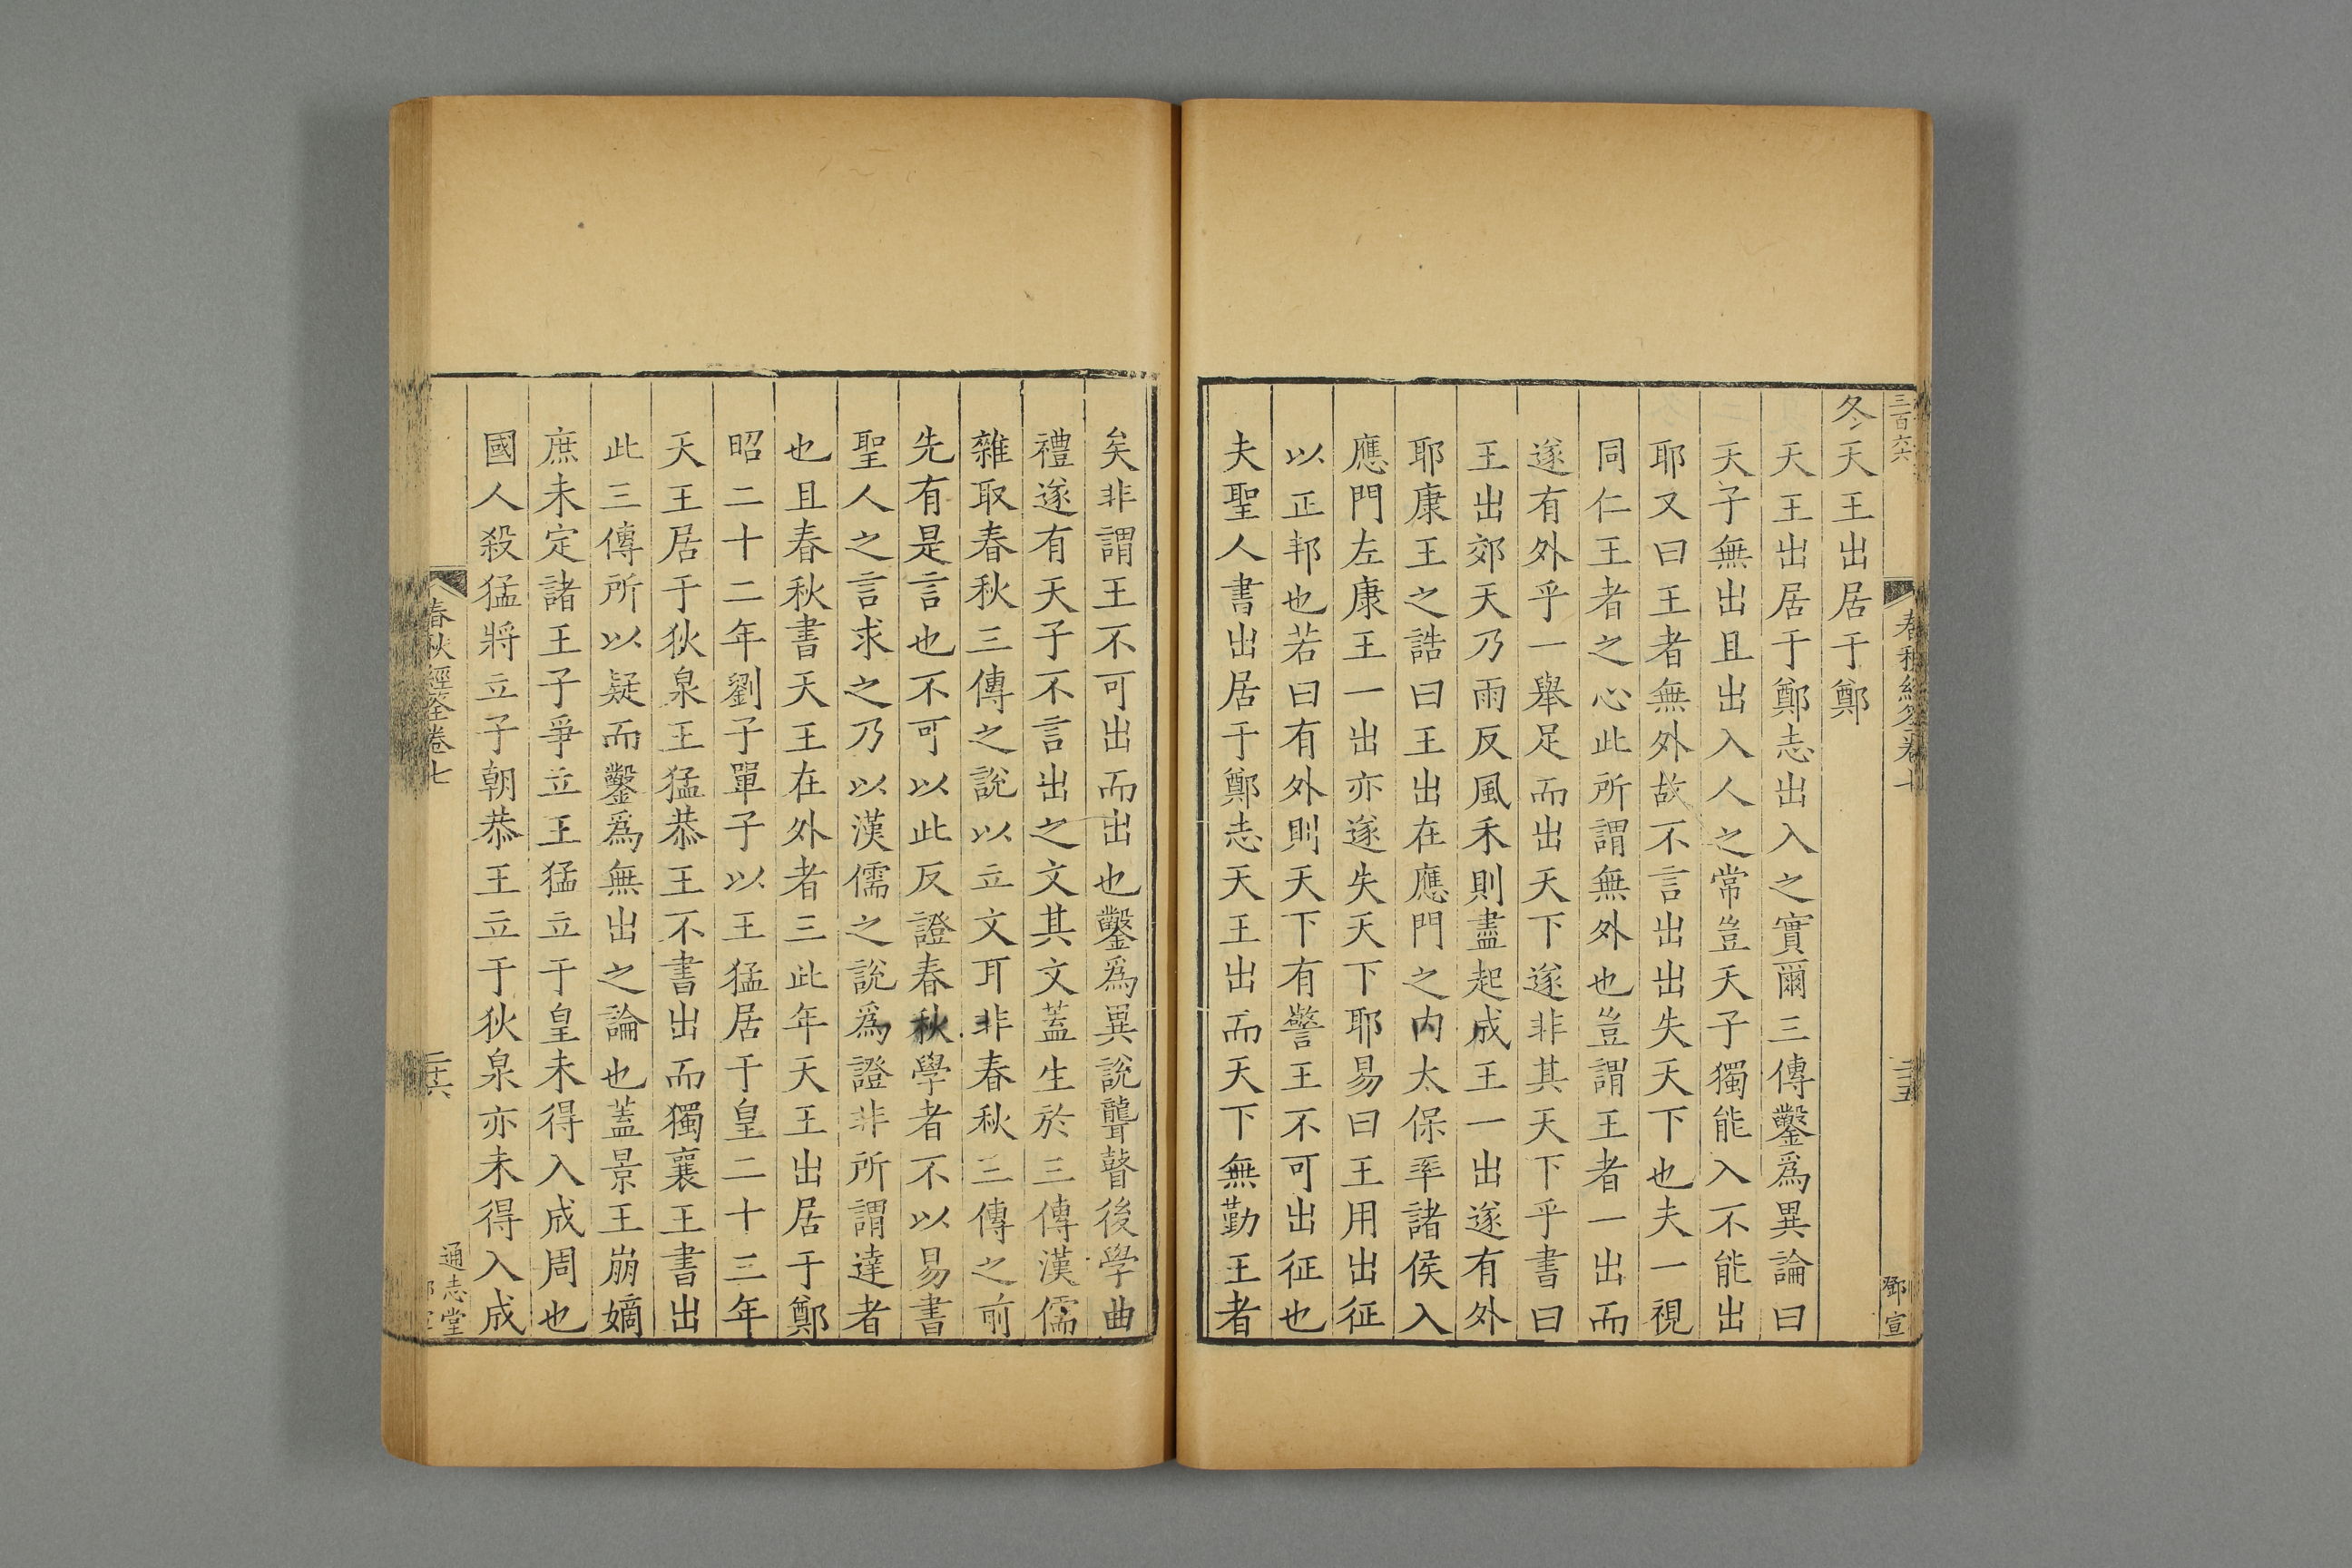 三百六六
春秋經筌卷七
二五
鄧宣
冬天王出居于鄭
天王出居于鄭志出入之實爾三傳鑿爲異論曰
天子無出且出入人之常豈天子獨能入不能出
耶又曰王者無外故不言出出失天下也夫一視
同仁王者之心此所謂無外也豈謂王者一出而
遂有外乎一舉足而出天下遂非其天下乎書曰
王出郊天乃雨反風禾則盡起成王一出遂有外
耶康王之誥曰王出在應門之內太保率諸侯入
應門左康王一出亦遂失天下耶易曰王用出征
以正邦也若曰有外則天下有警王不可出征也
夫聖人書出居于鄭志天王出而天下無勤王者
矣非謂王不可出而出也鑿爲異說聾瞽後學曲
禮遂有天子不言出之文其文蓋生於三傳漢儒
雜取春秋三傳之說以立文耳非春秋三傳之前
先有是言也不可以此反證春秋學者不以易書
聖人之言求之乃以漢儒之說爲證非所謂達者
也且春秋書天王在外者三此年天王出居于鄭
昭二十二年劉子單子以王猛居于皇二十三年
天王居于狄泉王猛恭王不書出而獨襄王書出
此三傳所以疑而鑿爲無出之論也蓋景王崩嫡
庶未定諸王子爭立王猛立于皇未得入成周也
國人殺猛將立子朝恭王立于狄泉亦未得入成
春秋經筌卷七
二十六
通志堂